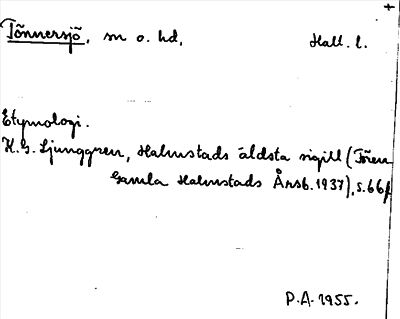 Tönnersjö, sn o. hd,   Hall. l.
Etymologi.
K.G. Ljunggren, Halmstads äldsta sigill (Fören
Gamla Halmstads Årsb. 1937), s. 66f
P.A. 1955.